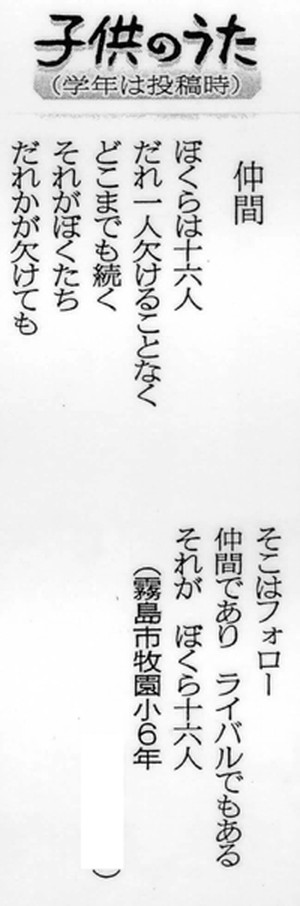 子供のうた
（学年は投稿時）
仲間
ぼくらは十六人
だれ一人欠けることなく
どこまでも続く
それがぼくたち
だれかが欠けても
そこはフォロー
仲間であり　ライバルでもある
それが　ぼくら十六人
（霧島市牧園小６年
）